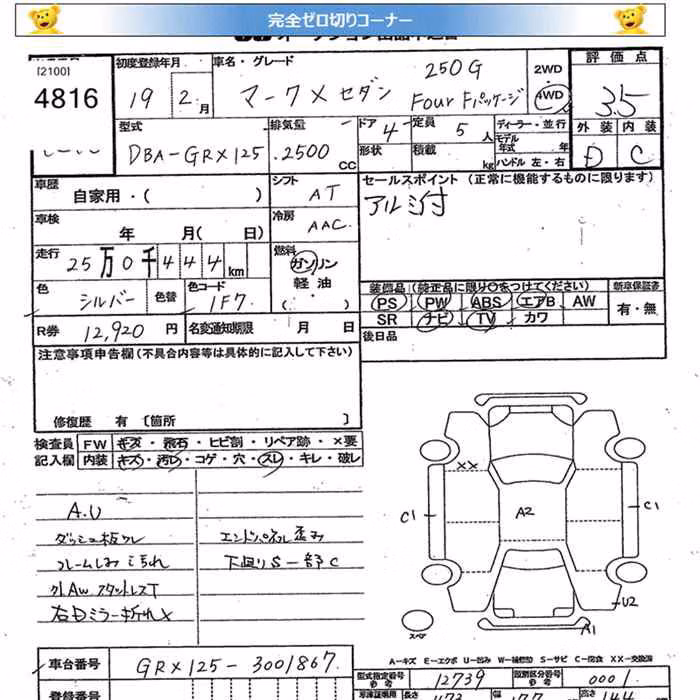 完全ゼロ切りコーナー
[2100]
4816
初度登録年月
19 2月
車名・グレード
マークX セダン
250G
Four Fパッケージ
2WD
4WD
評価点
3.5
外装 内装
D C
型式
DBA-GRX125
排気量
2500 CC
ドア 4
形状
定員 5人
積載 kg
ディーラー・並行
モデル年式 年
ハンドル 左・右
車歴
自家用・( )
シフト
AT
セールスポイント (正常に機能するものに限ります)
アルミ付
車検
年 月( 日)
冷房
AAC
走行
25万0千444km
燃料
ガソリン
軽油
( )
装備品(純正品に限り○をつけてください)
PS PW ABS エアB AW
SR ナビ TV カワ
新車保証書
有・無
色
シルバー
色替
色コード
1F7
R券 12,920円
名変通知期限 月 日
後日品
注意事項申告欄(不具合内容等は具体的に記入して下さい)
修復歴 有 〔箇所 〕
検査員記入欄
FW キズ・飛石・ヒビ割・リペア跡・×要
内装 キズ・汚レ・コゲ・穴・スレ・キレ・破レ
A.U
ダッシュ板ワレ
エンドパネル歪み
下廻りS一部C
外AW スタットレスT
右Dミラー折れX
XX
C1
A2
C1
U2
A1
スペア
A-キズ E-エクボ U-凹み W-補修跡 S-サビ C-腐食 XX-交換済
車台番号
GRX125-3001867
型式指定番号
12739
類別区分番号
0001
登録番号
長さ